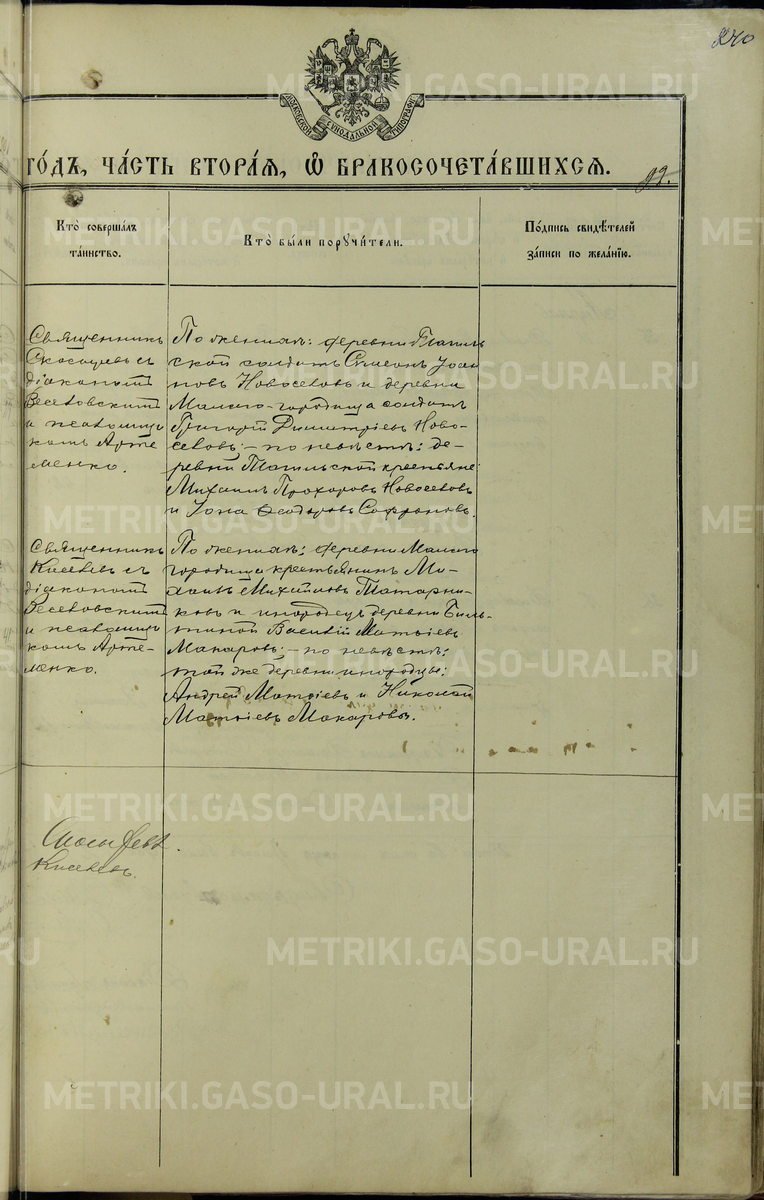 240
МОСКОВСКОЙ СѴНОДАЛЬНОЙ ТИПОГРАФІИ
ГО́ДЪ, ЧА́СТЬ ВТОРА́Я, Ѡ҆ БРАКОСОЧЕТА́ВШИХСЯ.
92.
Кто̀ соверша́лъ
та́инство.
Кто̀ бы́ли порꙋчи́тели.
По́дпись свидѣ́телей
за́писи по жела́нїю.
Священникъ
съ
діакономъ
Веселовскимъ
и псаломщи
комъ Арте
менко.
По женихѣ: деревни Тагиль
ской солдатъ Симеонъ Іоан
новъ Новоселовъ и деревни
Малаго-городища солдатъ
Григорій Димитріевъ Ново-
селовъ; – по невѣстѣ: де-
ревни Тагильской крестьяне:
Михаилъ Прохоровъ Новоселовъ
и Іона Ѳеодоровъ Софроновъ.
Священникъ
Киселевъ съ
діакономъ
Веселовскимъ
и псаломщи
комъ Арте-
менко.
По женихѣ: деревни Малаго
городища крестьянинъ Ми-
хаилъ Михайловъ Татарни-
ковъ и инородецъ деревни Биль-
тиной Василій Матѳіевъ
Макаровъ; – по невѣстѣ:
той же деревни инородцы:
Андрей Матѳіевъ и Николай
Матѳіевъ Макаровы.
Киселевъ.
METRIKI.GASO-URAL.RU